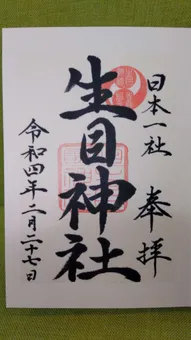 奉拝
日本一社
生目神社
令和四年二月二十七日